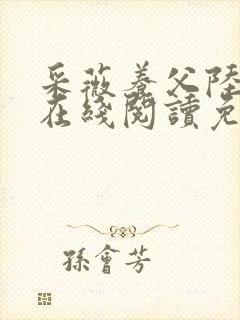 采薇養父陸
在綫閱讀免
孫會芳